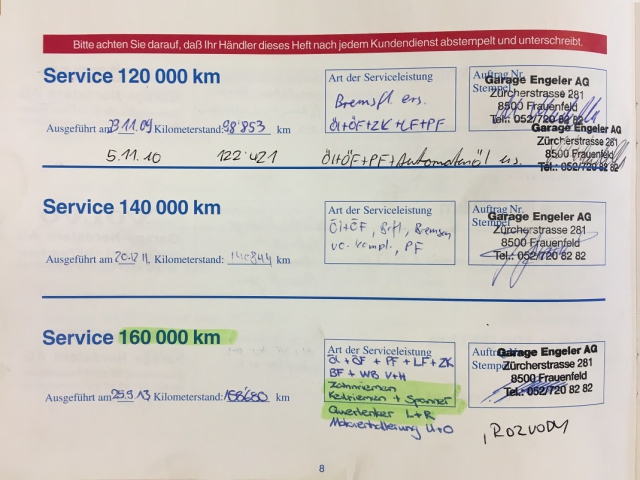 Bitte achten Sie darauf, daß Ihr Händler dieses Heft nach jedem Kundendienst abstempelt und unterschreibt.
Service 120 000 km
Art der Serviceleistung
Bremsfl. ers.
Öl+ÖF+ZK+LF+PF
Auftrag Nr.
Stempel
Garage Engeler AG
Zürcherstrasse 281
8500 Frauenfeld
Tel.: 052/720 82 82
Ausgeführt am 23.11.09 Kilometerstand: 98'853 km
5.11.10 122'421 Öl+ÖF+PF+Automatenöl ers.
Garage Engeler AG
Zürcherstrasse 281
8500 Frauenfeld
Tel.: 052/720 82 82
Service 140 000 km
Art der Serviceleistung
Öl+ÖF, Brfl., Bremsen
vo. kompl., PF
Auftrag Nr.
Stempel
Garage Engeler AG
Zürcherstrasse 281
8500 Frauenfeld
Tel.: 052/720 82 82
Ausgeführt am 20.12.11. Kilometerstand: km
Service 160 000 km
Art der Serviceleistung
Öl + ÖF + PF + LF + ZK
BF + WB V+H
Zahnriemen
Keilriemen + Spanner
Querlenker L+R
Motorenhalterung U+O
Auftrag
Stempel
Garage Engeler AG
Zürcherstrasse 281
8500 Frauenfeld
Tel.: 052/720 82 82
Ausgeführt am 25.9.13 Kilometerstand: 158'680 km
, ROZVODY
8